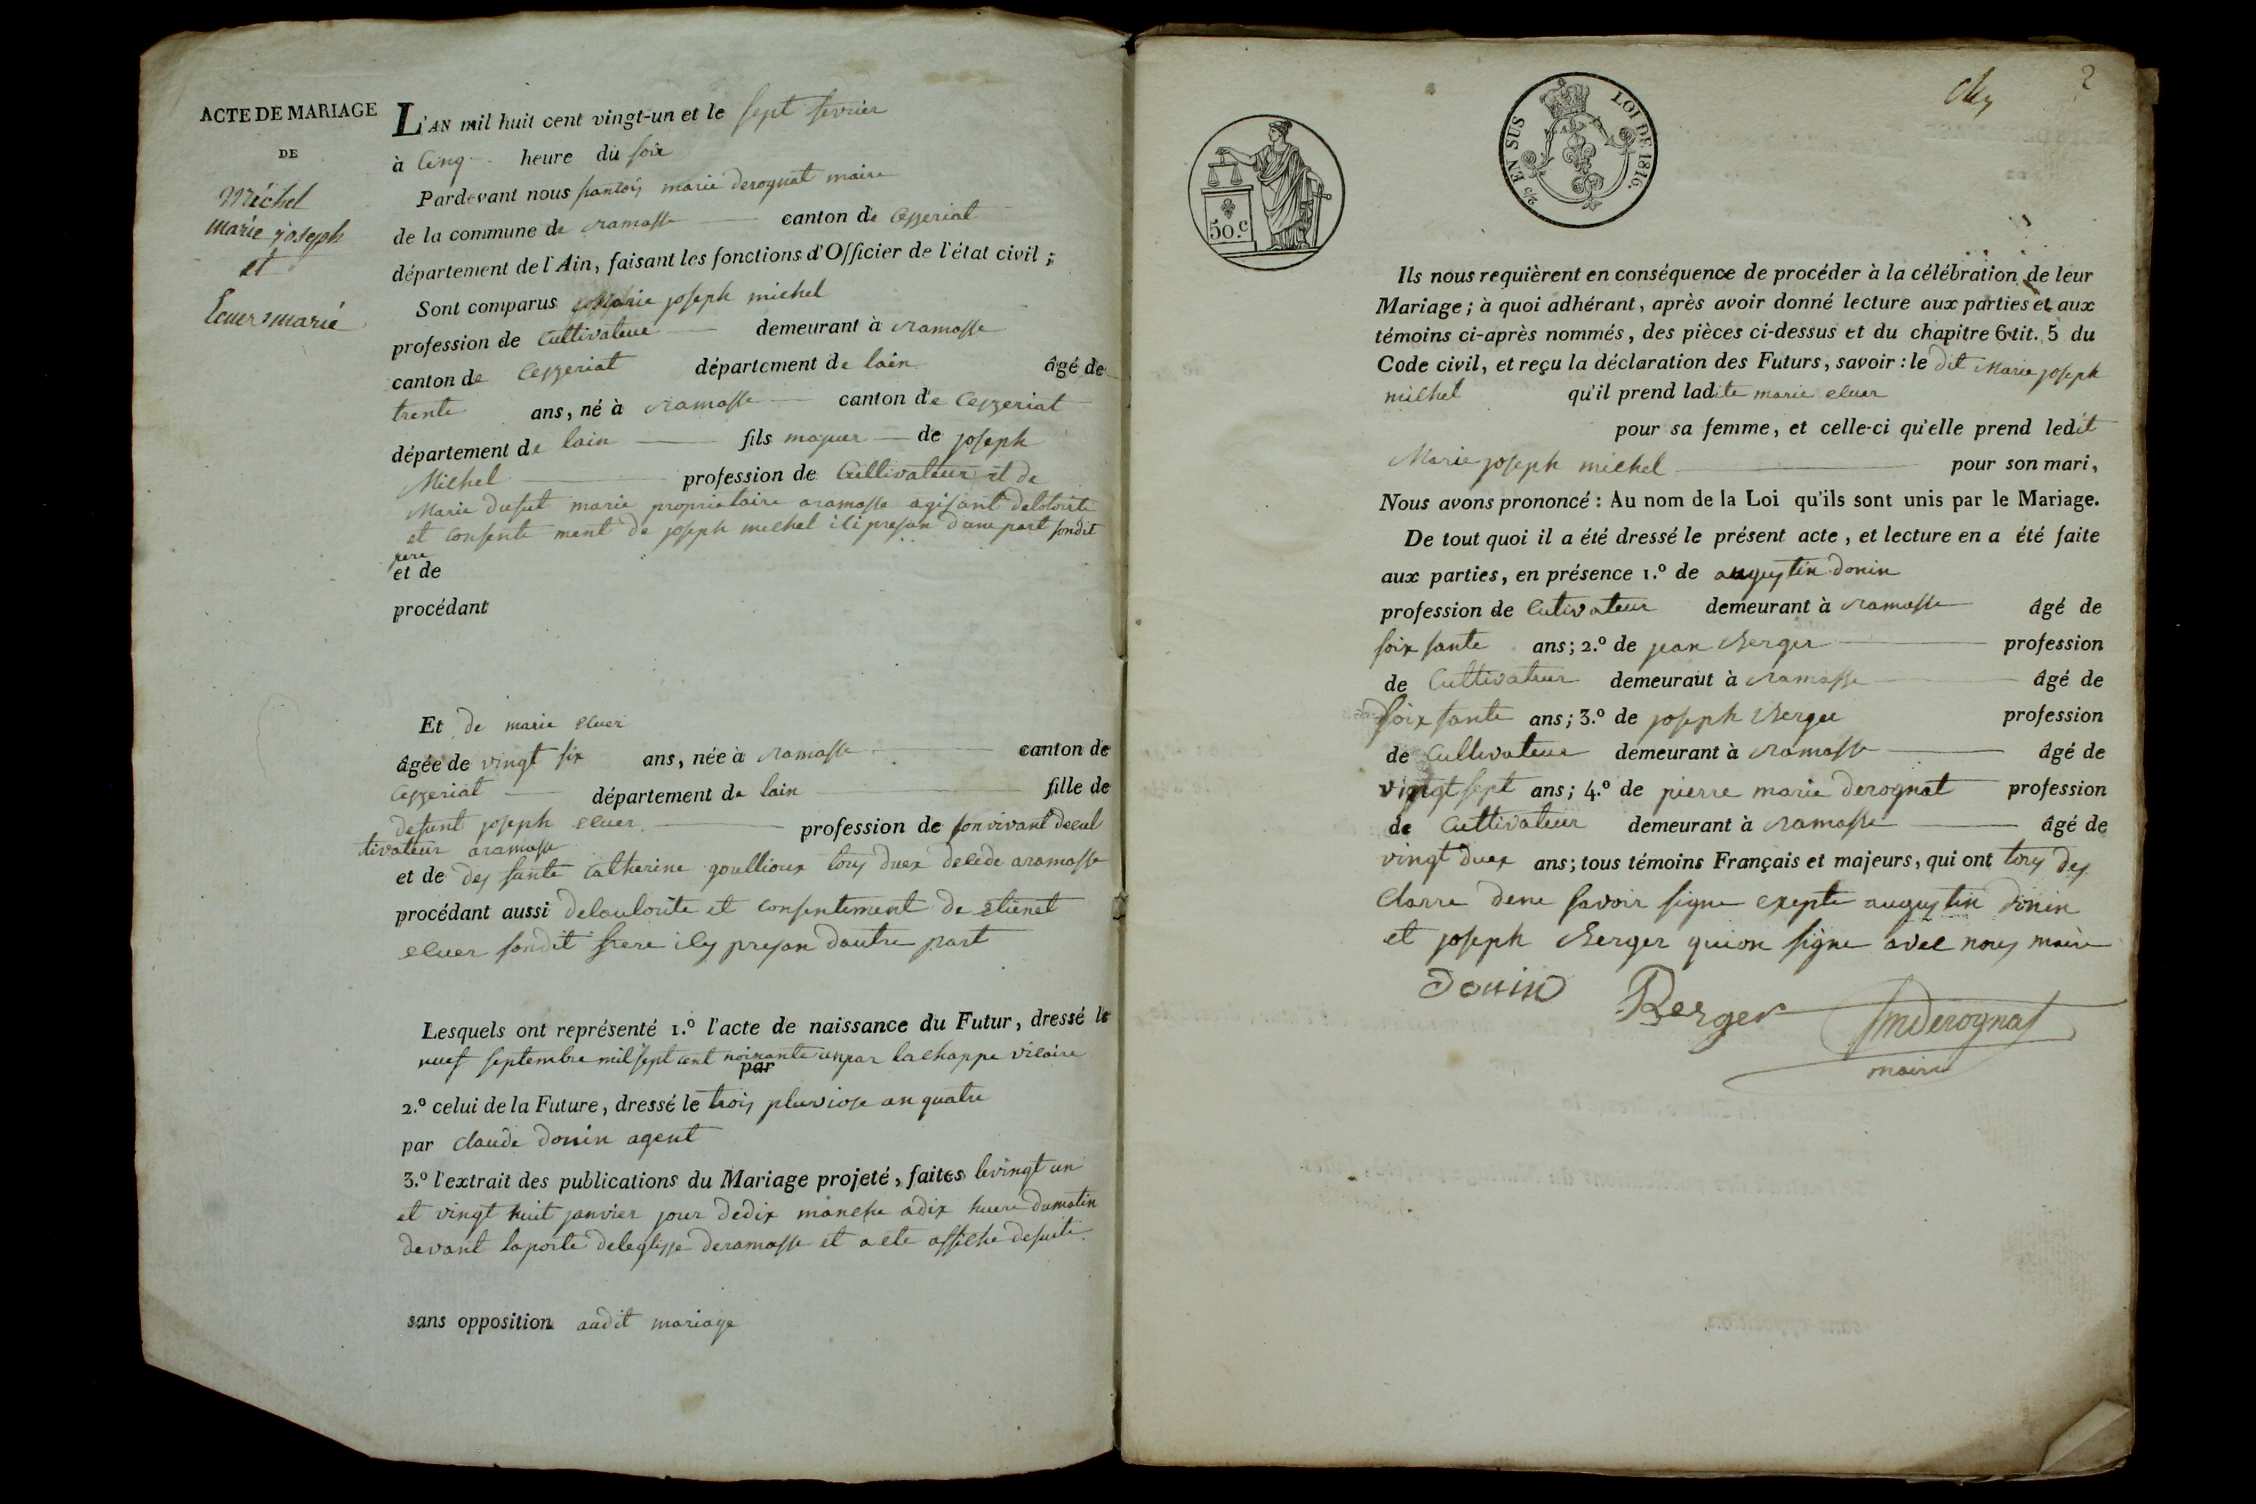 ACTE DE MARIAGE
DE
Mréchel
marie joseph
et
Ecuer marie
L'AN mil huit cent vingt-un et le sept fevrier
à Cinq heure du soir
Pardevant nous marie derognat maire
de la commune de ramasse canton de Ceyzeriat
département de l'Ain, faisant les fonctions d'Officier de l'état civil ;
Sont comparus marie joseph michel
profession de Cultivateur demeurant à ramasse
canton de Ceyzeriat département de lain âgé de
trente ans, né à ramasse canton de Ceyzeriat
département de lain fils majeur de joseph
Michel profession de Cultivateur et de
Marie dufut marie proprietaire aramasse agisant
et Consente ment de joseph michel ici presan dune part sondit
pere
et de
procédant
Et de marie ecuer
âgée de vingt six ans, née à ramasse canton de
Ceyzeriat département de lain fille de
defunt joseph ecuer profession de sonvivant decul
tivateur aramasse
et de des funte Catherine goullioux tous duex decede aramasse
procédant aussi deloulorite et consentement de etienet
ecuer sondit frere icy presan dautre part
Lesquels ont représenté 1.º l'acte de naissance du Futur, dressé le
neuf septembre mil sept cent noinante un par lachappe vicaire
par
2.º celui de la Future, dressé le trois pluviose an quatre
par claude donin agent
3.º l'extrait des publications du Mariage projeté, faites levingt un
et vingt huit janvier jour dedix manche adix huere dumatin
devant laporte deleglisse deramasse et a ete affiche desuite
sans opposition audit mariage
2
2/0 EN SUS
LOI DE 1816.
50.c
Ils nous requièrent en conséquence de procéder à la célébration de leur
Mariage ; à quoi adhérant, après avoir donné lecture aux parties et aux
témoins ci-après nommés, des pièces ci-dessus et du chapitre 6 tit. 5 du
Code civil, et reçu la déclaration des Futurs, savoir : le dit Marie joseph
michel qu'il prend ladite marie ecuer
pour sa femme, et celle-ci qu'elle prend ledit
Marie joseph michel pour son mari,
Nous avons prononcé : Au nom de la Loi qu'ils sont unis par le Mariage.
De tout quoi il a été dressé le présent acte, et lecture en a été faite
aux parties, en présence 1.º de augustin donin
profession de Cutivateur demeurant à ramasse âgé de
soix sante ans ; 2.º de jean Berger profession
de Cultivateur demeuraut à ramasse âgé de
soix sante ans ; 3.º de joseph Berger profession
de Cultivateur demeurant à ramasse âgé de
vingt sept ans ; 4.º de pierre marie derognat profession
de Cultivateur demeurant à ramasse âgé de
vingt duex ans ; tous témoins Français et majeurs, qui ont tous des
clarre dene savoir signe exepte augustin donin
et joseph Berger quion signe avec nous maire
Donin
Berger
fmderognat
maire